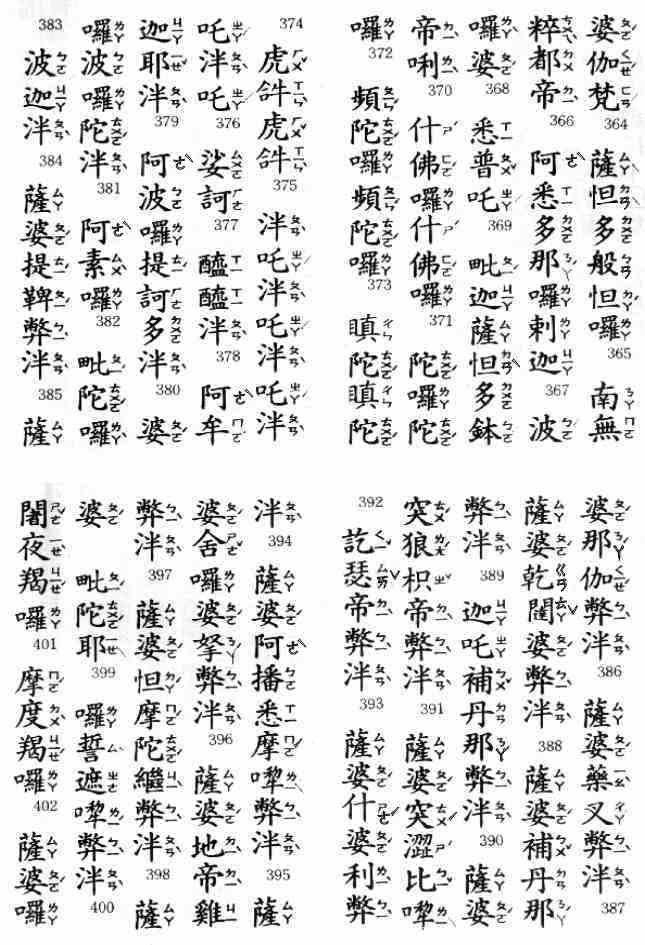 婆伽梵 364 薩怛多般怛囉 365 南無
粹都帝 366 阿悉多那囉剌迦 367 波
囉婆 368 悉普吒 369 毗迦薩怛多鉢
帝唎 370 什佛囉什佛囉 371 陀囉陀
囉 372 頻陀囉頻陀囉 373 瞋陀瞋陀
374 虎𤙖虎𤙖 375 泮吒泮吒泮吒泮
吒泮吒 376 娑訶 377 醯醯泮 378 阿牟
迦耶泮 379 阿波囉提訶多泮 380 婆
囉波囉陀泮 381 阿素囉 382 毗陀囉
383 波迦泮 384 薩婆提鞞弊泮 385 薩
婆那伽弊泮 386 薩婆藥叉弊泮 387
薩婆乾闥婆弊泮 388 薩婆補丹那
弊泮 389 迦吒補丹那弊泮 390 薩婆
突狼枳帝弊泮 391 薩婆突澀比㗚
392 訖瑟帝弊泮 393 薩婆什婆利弊
泮 394 薩婆阿播悉摩㗚弊 395 薩
婆舍囉婆拏弊泮 396 薩婆地帝雞
弊泮 397 薩婆怛摩陀繼弊泮 398 薩
婆毗陀耶 399 囉誓遮㗚弊泮 400
闍夜羯囉 401 摩度羯囉 402 薩婆囉